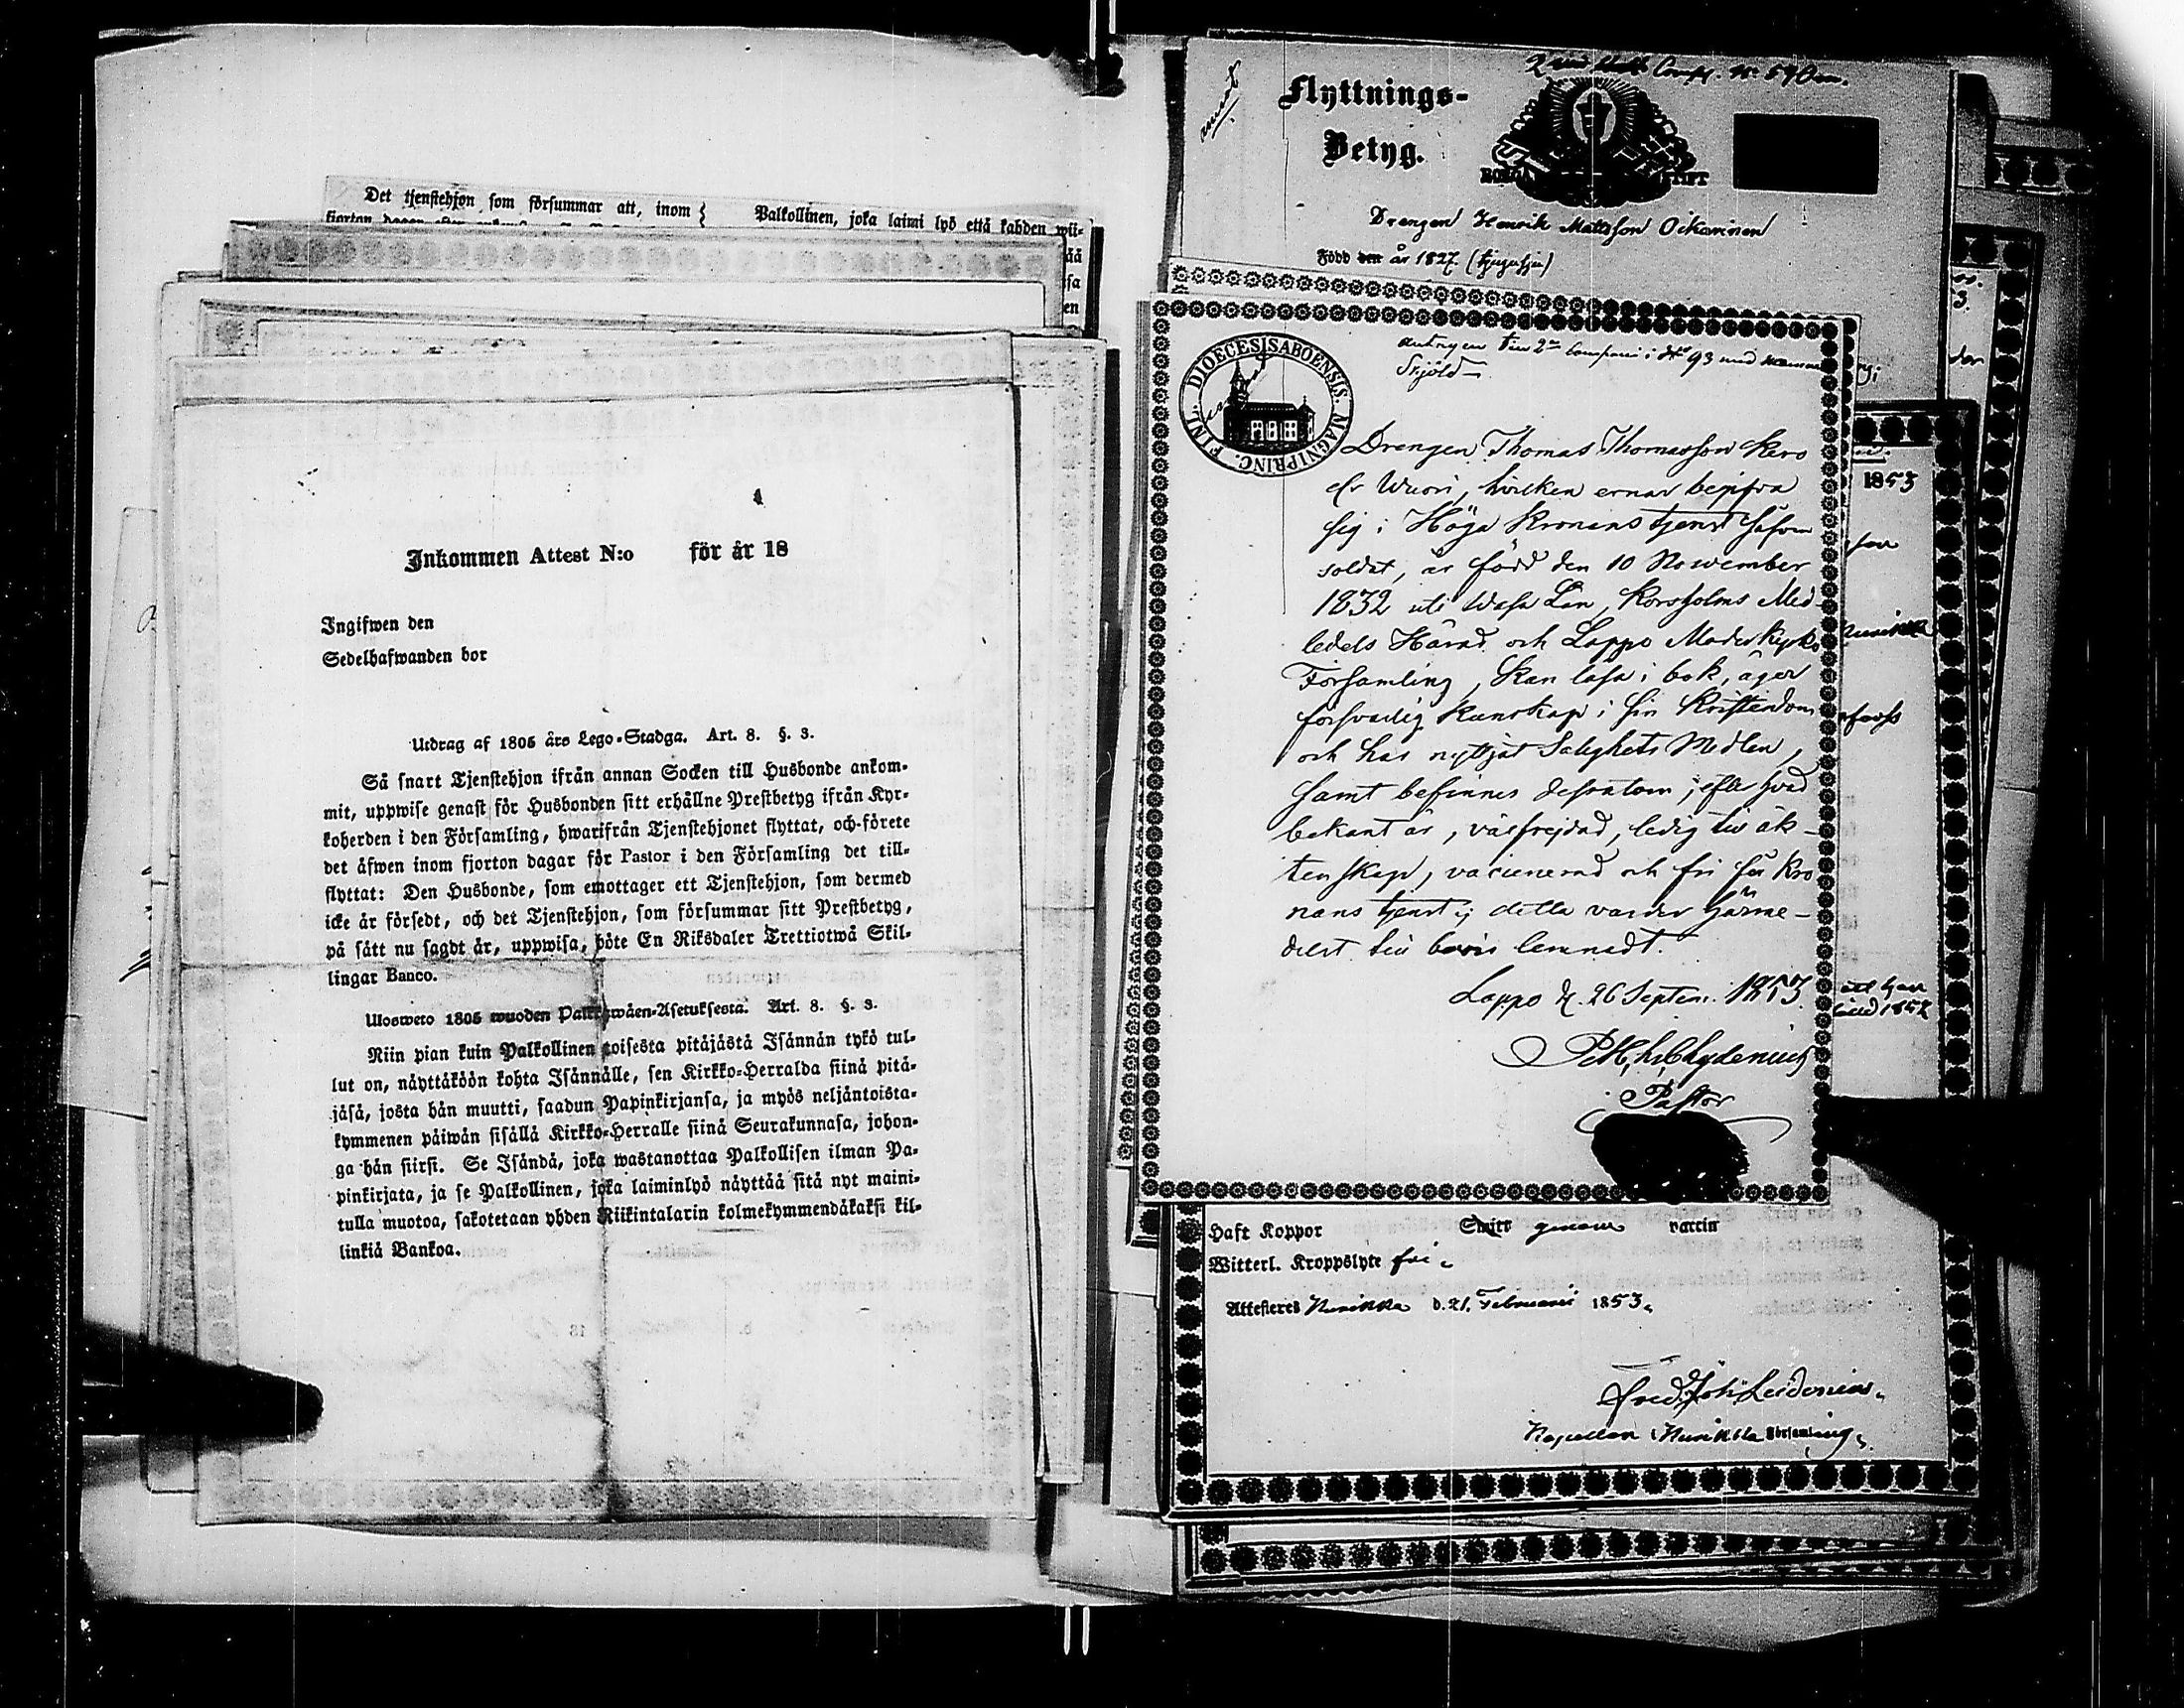 Det tjenstehjon som försummar att, inom
Palkollinen, joka laimi lyö että kahden wii-
Inkommen Attest N:o för år 18
Ingifwen den
Sedelhafwanden bor
Utdrag af 1805 års Lego-Stadga. Art. 8. §. 3.
Så snart Tjenstehjon ifrån annan Socken till Husbonde ankom-
mit, uppwise genast för Husbonden sitt erhållne Prestbetyg ifrån Kyr-
koherden i den Församling, hwarifrån Tjenstehjonet flyttat, och förete
det äfwen inom fjorton dagar för Pastor i den Församling det till-
flyttat: Den Husbonde, som emottager ett Tjenstehjon, som dermed
icke är försedt, och det Tjenstehjon, som försummar sitt Prestbetyg,
på sätt nu sagdt är, uppwisa, böte En Riksdaler Trettiotwå Skil-
lingar Banco.
Ulosweto 1805 wuoden Palkkawäen-Asetuksesta. Art. 8. §. 3.
Niin pian kuin Palkollinen toisesta pitäjästä Isännän tykö tul-
lut on, näyttäköön kohta Isännälle, sen Kirkko-Herralda siinä pitä-
jäsä, josta hän muutti, saadun Papinkirjansa, ja myös neljäntoista-
kymmenen päiwän sisällä Kirkko-Herralle siinä Seurakunnasa, johon-
ga hän siirsi. Se Isändä, joka wastanottaa Palkollisen ilman Pa-
pinkirjata, ja se Palkollinen, joka laiminlyö näyttää sitä nyt maini-
tulla muotoa, sakotetaan yhden Riikintalarin kolmekymmendäkaksi kil-
linkiä Bankoa.
Flyttnings-
Betyg.
Drengen Henrik Mattsson Oikarinen
Född den år 1827. (tjugusju)
DIOECESIS ABOENSIS. MAGNI PRINC. FINL.
antagen till 2dra Compani i No 93 med namnet
Skjöld
Drengen Thomas Thomasson Karo
elr Wuori, hvilken ernar begifva
sig i Höga Kronans tjenst såsom
soldat, är född den 10 November
1832 uti Wasa Län, Korsholms Med-
ledels Härad och Lappo Moderkyrko
Församling, kan läsa i bok, äger
försvarlig kunskap i sin Kristendom
och har nyttjat Salighets Medlen,
samt befinnes dessutom, efter hvad
bekant är, välfrejdad, ledig till äk-
tenskap, vaccinerad och fri för Kro
nans tjenst; detta varder härme-
delst till bevis lemnadt.
Lappo d. 26 Septem. 1853.
Chydenius
Pastor
Haft Koppor Smitt genom vaccin
Witterl. Kroppslyte fri.
Attesteres Kurikka d. 21. Februarii 1853.
Kapellan i Kurikka Församling.
1853